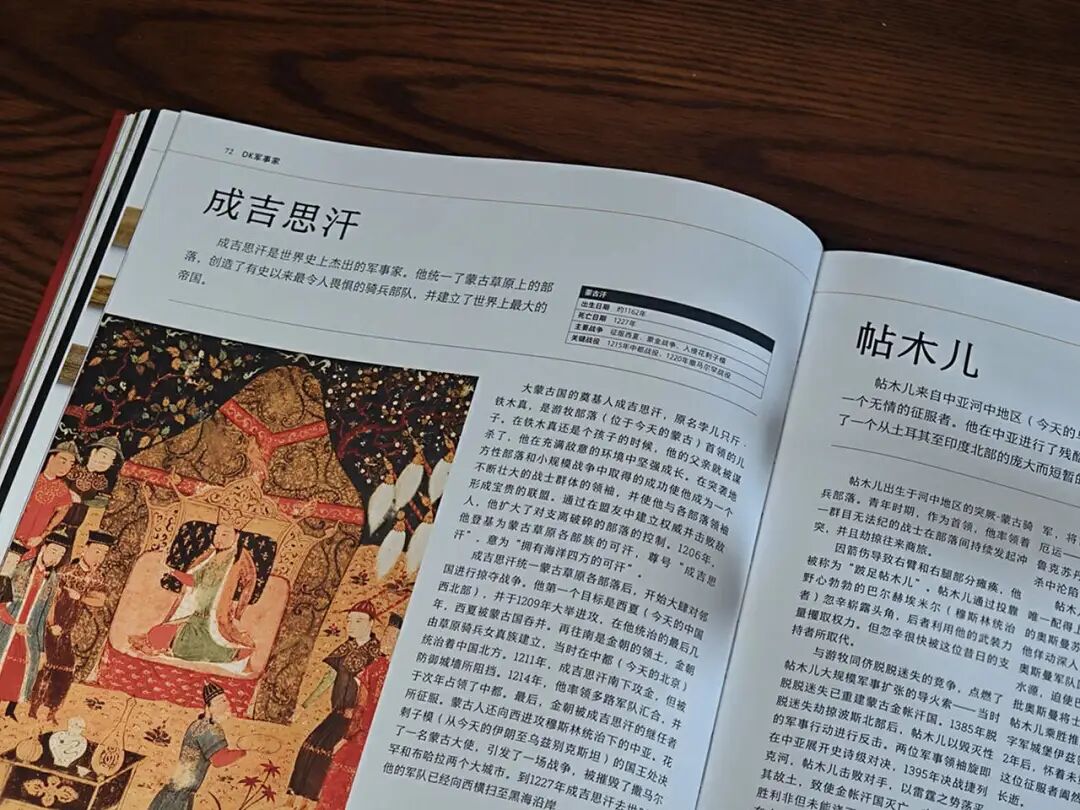 72 DK军事家
成吉思汗
成吉思汗是世界史上杰出的军事家。他统一了蒙古草原上的部
落，创造了有史以来最令人畏惧的骑兵部队，并建立了世界上最大的
帝国。
蒙古汗
出生日期 约1162年
死亡日期 1227年
主要战争 征服西夏、蒙金战争、入侵花剌子模
关键战役 1215年中都战役、1220年撒马尔罕战役
大蒙古国的奠基人成吉思汗，原名孛儿只斤·
铁木真，是游牧部落（位于今天的蒙古）首领的儿
子。在铁木真还是个孩子的时候，他的父亲就被谋
杀了，他在充满敌意的环境中坚强成长。在突袭地
方性部落和小规模战争中取得的成功使他成为一个
不断壮大的战士群体的领袖，并使他与各部落领袖
形成宝贵的联盟。通过在盟友中建立权威并击败敌
人，他扩大了对支离破碎的部落的控制。1206年，
他登基为蒙古草原各部族的可汗，尊号“成吉思
汗”，意为“拥有海洋四方的可汗”。
成吉思汗统一蒙古草原各部落后，开始大肆对邻
国进行掠夺战争。他第一个目标是西夏（今天的中国
西北部），并于1209年大举进攻，在他统治的最后几
年，西夏被蒙古国吞并。再往南是金朝的领土，金朝
由草原骑兵女真族建立，当时在中都（今天的北京）
统治着中国北方。1211年，成吉思汗南下攻金，但被
防御城墙所阻挡。1214年，他率领多路军队汇合，并
于次年占领了中都。最后，金朝被成吉思汗的继任者
所征服。蒙古人还向西进攻穆斯林统治下的中亚。花
剌子模（从今天的伊朗至乌兹别克斯坦）的国王处决
了一名蒙古大使，引发了一场战争，被摧毁了撒马尔
罕和布哈拉两个大城市。到1227年成吉思汗去世
他的军队已经向西横扫至黑海沿岸
帖木儿
帖木儿来自中亚河中地区（今天的
一个无情的征服者。他在中亚进行了残酷
了一个从土耳其至印度北部的庞大而短暂
帖木儿出生于河中地区的突厥-蒙古骑
兵部落。青年时期，作为首领，他率领着
一群目无法纪的战士在部落间持续发起冲
突，并且劫掠往来商旅。
因箭伤导致右臂和右腿部分瘫痪，他
被称为“跛足帖木儿”。帖木儿通过投靠
野心勃勃的巴尔赫埃米尔（穆斯林统治
者）忽辛崭露头角，后者利用他的武装力
量攫取权力。但忽辛很快被这位昔日的支
持者所取代。
与游牧同侪脱脱迷失的竞争，点燃了
帖木儿大规模军事扩张的导火索——当时
脱脱迷失已重建金帐汗国。1385年脱
脱迷失劫掠波斯北部后，帖木儿以毁灭性
的军事行动进行反击。两位军事领袖旋即
在中亚展开史诗对决，1395年决战捷列
克河，帖木儿击败对手，以雷霆之势荡平
其故土，致使金帐汗国灭亡
胜利非但未能
军，将
厄运——
鲁克苏丹
杀中沦陷
帖木
唯一配得上
的奥斯曼苏
他佯动深入
奥斯曼军队
水源，迫使巴
批奥斯曼将士
帖木儿乘胜推
字军城堡伊兹
2年后，怀着未
这位征服者阖然
长逝